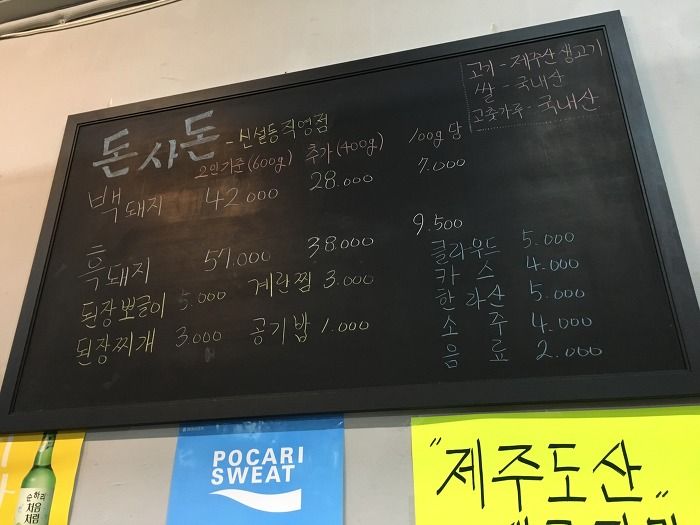 돈사돈 - 신설동직영점
고기 - 제주산생고기
쌀 - 국내산
고춧가루 - 국내산
2인기준(600g) 추가(400g) 100g당
백돼지 42.000 28.000 7.000
흑돼지 57.000 38.000 9.500
된장뽀글이 5.000 계란찜 3.000
된장찌개 3.000 공기밥 1.000
클라우드 5.000
카스 4.000
한라산 5.000
소주 4.000
음료 2.000
순하리
처음
처럼
POCARI
SWEAT
"제주도산"